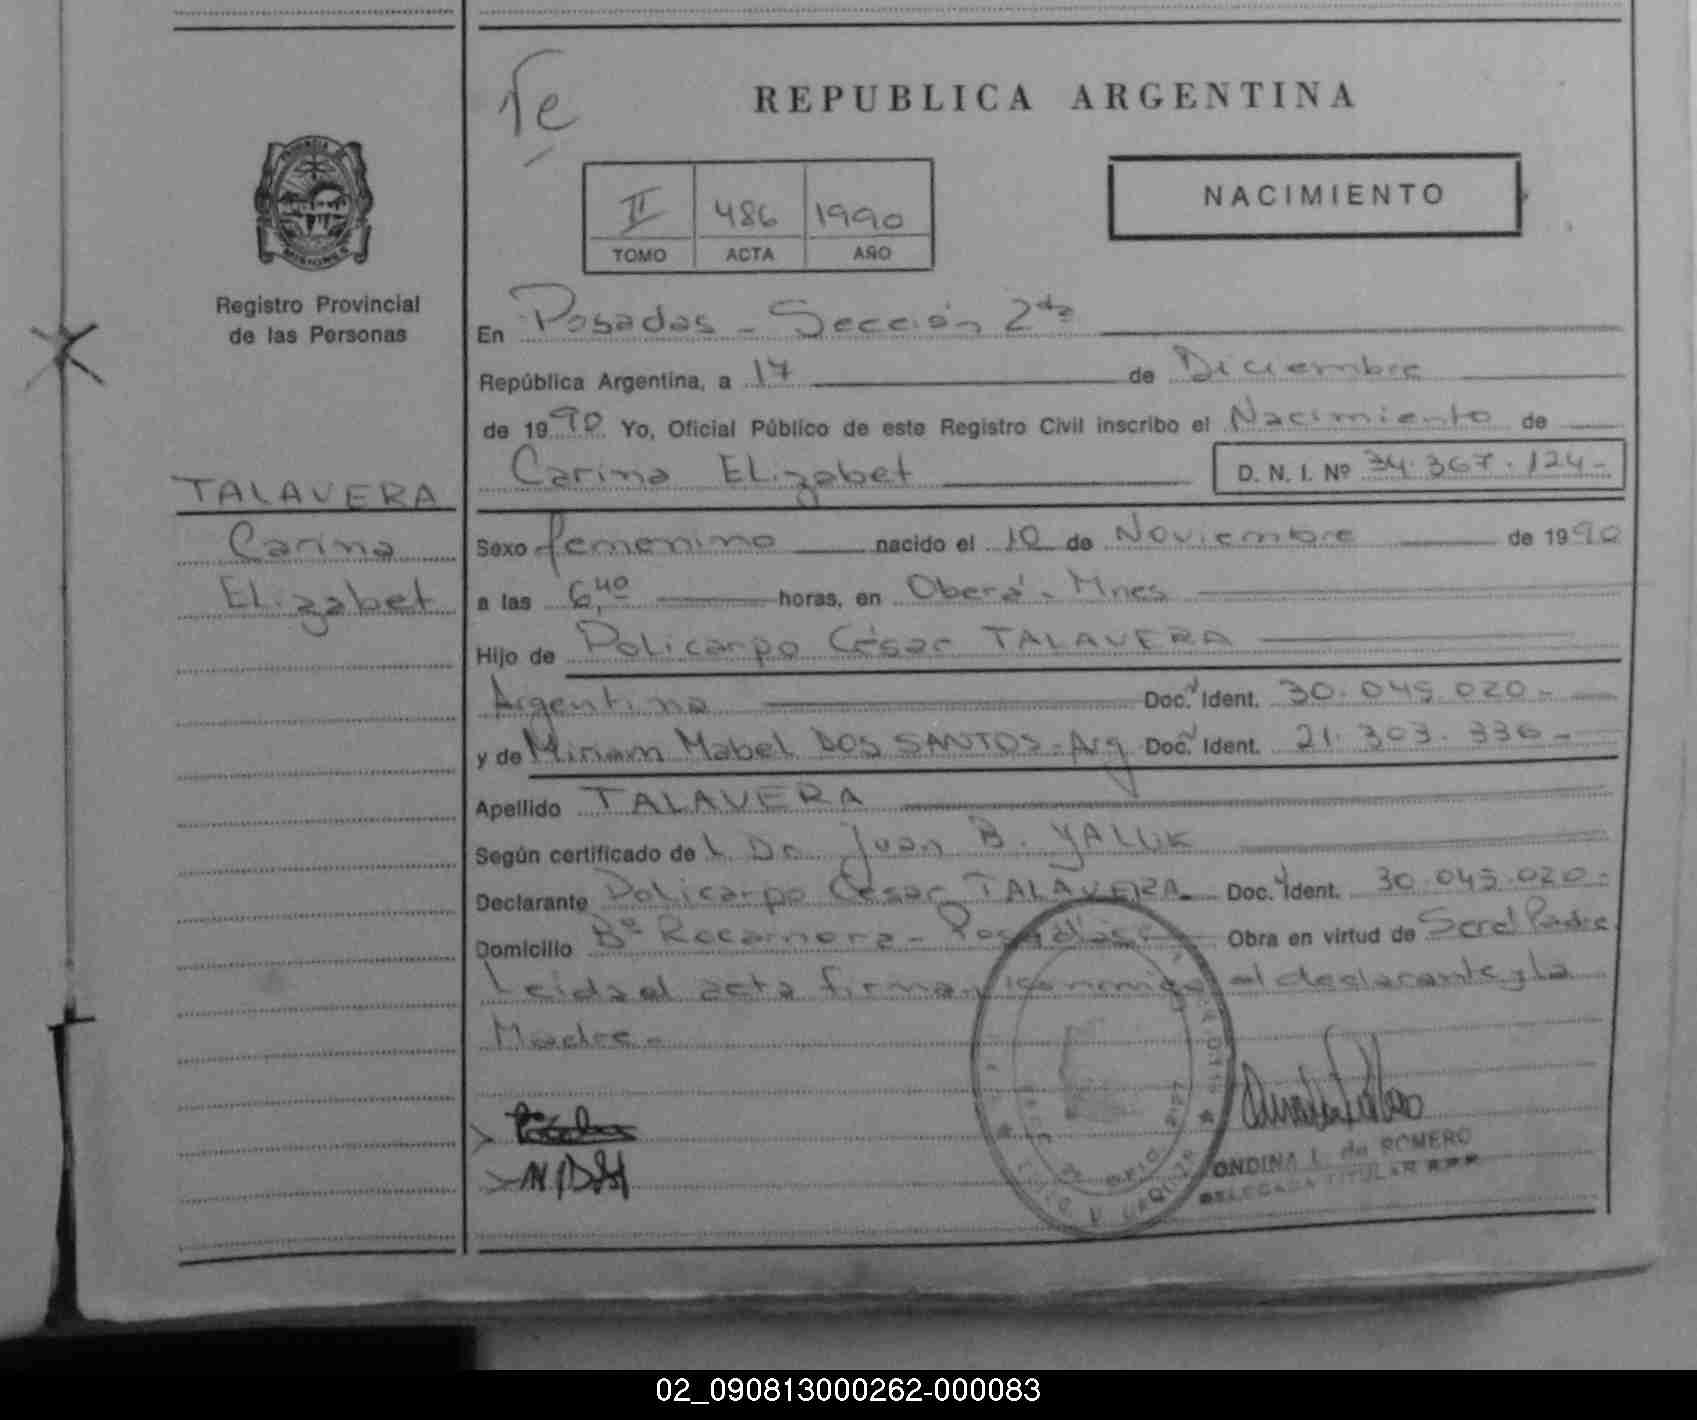 Te
REPUBLICA ARGENTINA
NACIMIENTO
II 486 1990
TOMO ACTA AÑO
PROVINCIA DE
MISIONES
Registro Provincial
de las Personas
En Posadas - Sección 2da
República Argentina, a 17 de Diciembre
de 1990 Yo, Oficial Público de este Registro Civil inscribo el Nacimiento de
Carina ELizabet D. N. I. Nº 34.367.124-
TALAVERA
Carina
ELizabet
Sexo femenino nacido el 10 de Noviembre de 1990
a las 6,40 horas, en Oberá - Mnes
Hijo de Policarpo César TALAVERA
Argentino Doc. Ident. 30.045.020-
y de Miriam Mabel DOS SANTOS - Arg Doc. Ident. 21.303.336-
Apellido TALAVERA
Según certificado de L Dr. Juan B. YALUK
Declarante Policarpo César TALAVERA Doc. Ident. 30.045.020-
Domicilio Bº Rocamora - Posadas Obra en virtud de Ser el Padre
Leida el acta firman conmigo el declarante y la
Madre -
ONDINA L. de ROMERO
DELEGADA TITULAR R.P.P.
02_090813000262-000083